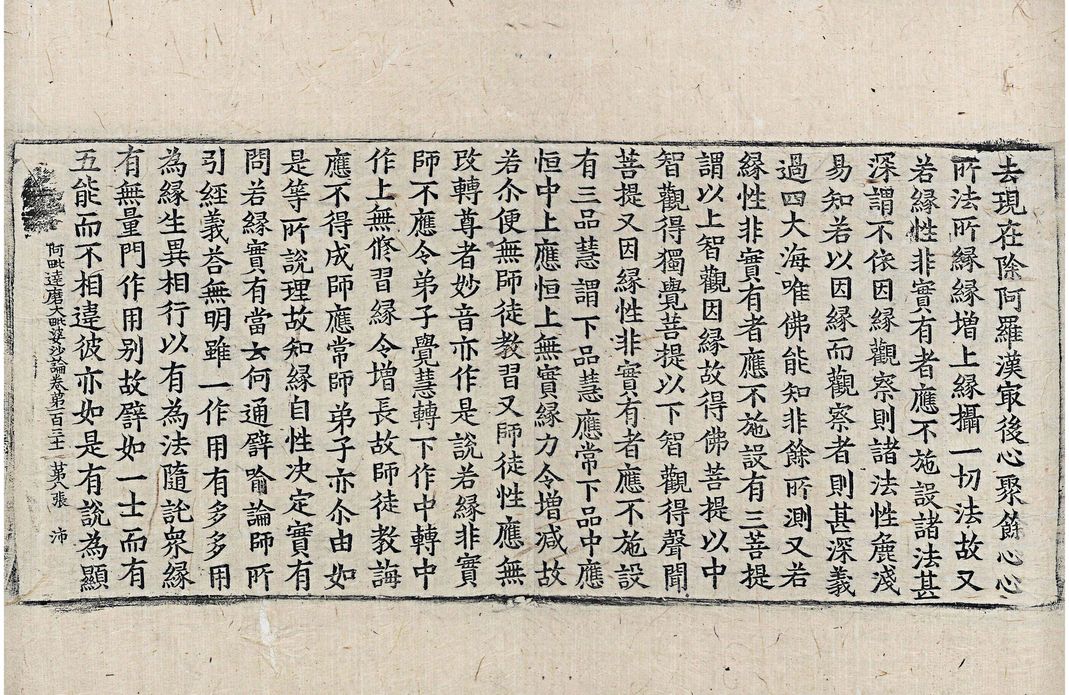 去現在除阿羅漢㝡後心聚餘心心
所法所緣緣增上緣攝一切法故又
若緣性非實有者應不施設諸法甚
深謂不依因緣觀察則諸法性麁淺
易知若以因緣而觀察者則甚深義
過四大海唯佛能知非餘所測又若
緣性非實有者應不施設有三菩提
謂以上智觀因緣故得佛菩提以中
智觀得獨覺菩提以下智觀得聲聞
菩提又因緣性非實有者應不施設
有三品慧謂下品慧應常下品中應
恒中上應恒上無實緣力令增減故
若尒便無師徒教習又師徒性應無
改轉尊者妙音亦作是說若緣非實
師不應令弟子覺慧轉下作中轉中
作上無修習緣令增長故師徒教誨
應不得成師應常師弟子亦尒由如
是等所說理故知緣自性决定實有
問若緣實有當云何通譬喻論師所
引經義荅無明雖一作用有多多用
為緣生異相行以有為法隨託眾緣
有無量門作用別故譬如一士而有
五能而不相違彼亦如是有說為顯
阿毗達磨大毗婆沙論卷第一百三十一 第八張 沛